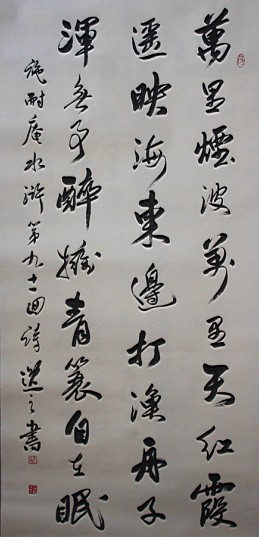 萬里煙波萬里天紅霞
遙映海東邊打漁舟子
渾無事醉擁青蓑自在眠
施耐庵水滸第九十一回詩 書